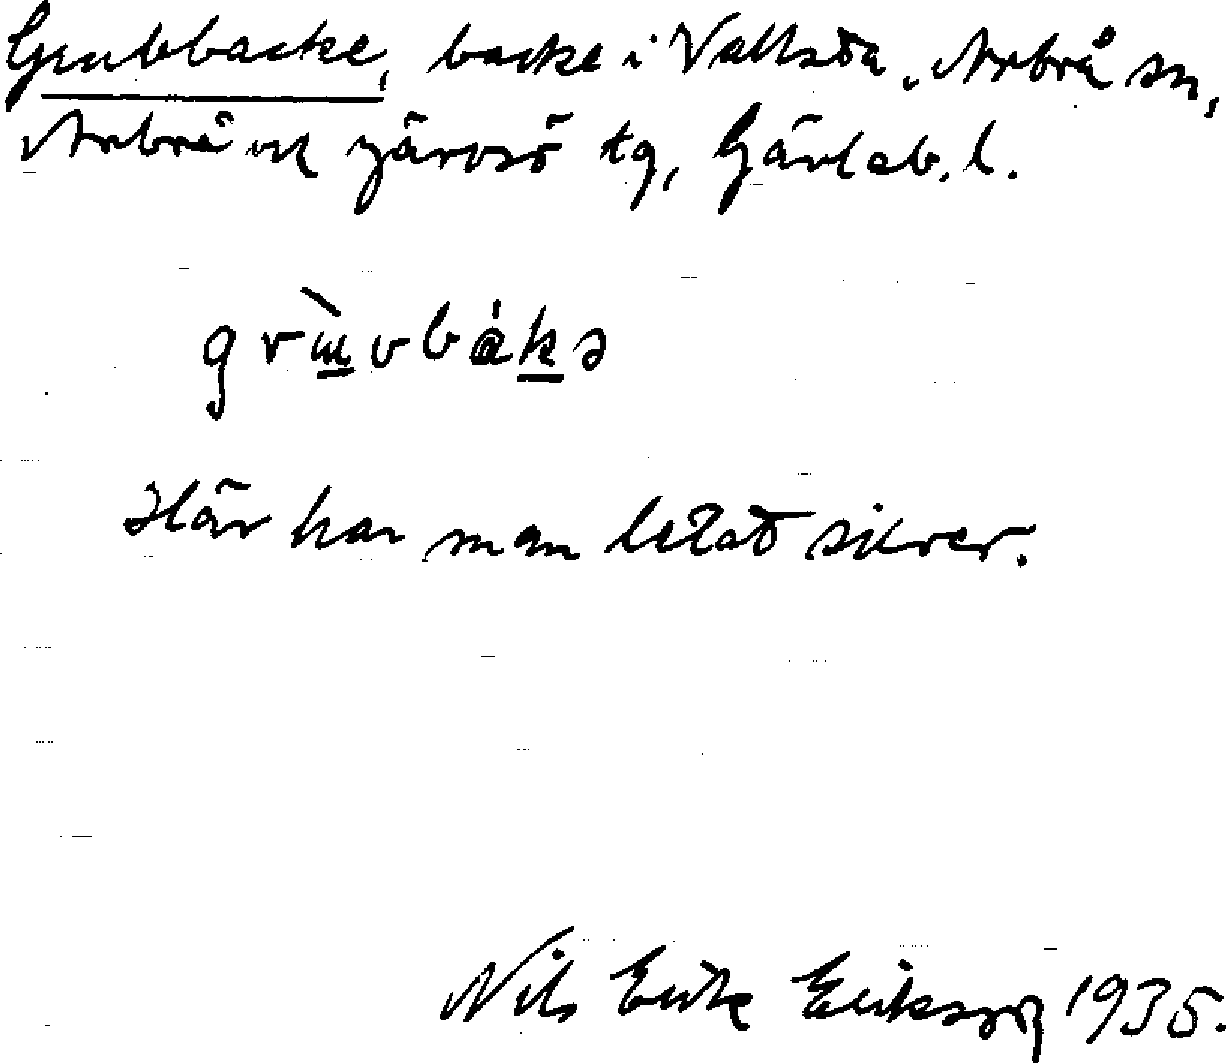 Grubbacke, backe i Vallsta, Arbrå sn,
Arbrå ock Järvsö tg, Gävleb. l.
Här har man letat silver.
Nils Erik Eriksson 1935.